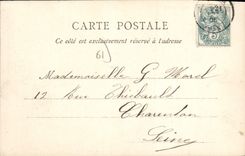 CARTE POSTALE
Ce côté est exclusivement réservé à l'adresse
61
Mademoiselle G. Morel
12 Rue Thiébault
Charenton
Seine